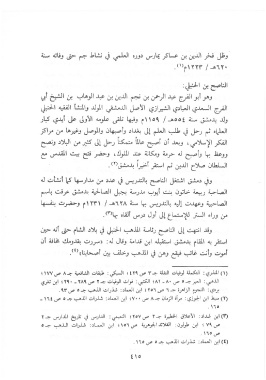 وظل فخر الدين بن عساكر يمارس دوره العلمي في نشاط جم حتى وفاته سنة
٦٢٠هـ / ١٢٢٣م(١).
الناصح بن الحنبلي:
وهو أبو الفرج عبد الرحمن بن نجم الدين بن عبد الوهاب بن الشيخ أبي
الفرج السعدي العبادي الشيرازي الأصل الدمشقي المولد والمنشأ الفقيه الحنبلي
ولد بدمشق سنة ٥٥٤هـ / ١١٥٩م وفيها تلقى علومه الأولى على أيدي كبار
العلماء ثم رحل في طلب العلم إلى بغداد وأصبهان والموصل وغيرها من مراكز
الفكر الإسلامي، وبعد أن أصبح عالماً متمكناً رحل إلى كثير من البلاد ونصح
ووعظ بها وأصبح له حرمة ومكانة عند الملوك، وحضر فتح بيت المقدس مع
السلطان صلاح الدين ثم استقر أخيراً بدمشق(٢).
وفي دمشق اشتغل الناصح بالتدريس في عدد من مدارسها كما أنشأت له
الصاحبة ربيعة خاتون بنت أيوب مدرسة بجبل الصالحية بدمشق عرفت باسم
الصاحبية وعهدت إليه بالتدريس بها سنة ٦٢٨هـ / ١٢٣١م وحضرت بنفسها
من وراء الستر للإستماع إلى أول درس ألقاه بها(٣).
وقد انتهت إلى الناصح رئاسة المذهب الحنبلي في بلاد الشام حتى أنه حين
استقر به المقام بدمشق استقبله ابن قدامة وقال له: «سررت بقدومك مخافة أن
أموت وأنت غائب فيقع وهن في المذهب وخلف بين أصحابنا»(٤).
(١) المنذري: التكملة لوفيات النقلة جـ ٣ ص
(٢) سبط ابن الجوزي: مرآة الزمان جـ ٨ ص ٧٠٠، ابن العماد: شذرات الذهب جـ ٥ ص ١٦٤ -
١٦٥.
(٣) ابن شداد: الأعلاق الخطيرة جـ ٢ ص ٢٥٧، النعيمي: الدارس في تاريخ المدارس جـ ٢
ص ٧٩، ابن طولون: القلائد الجوهرية ص ١٥٦، ابن العماد: شذرات الذهب جـ ٥
ص ١٦٥.
(٤) ابن العماد: شذرات الذهب جـ ٥ ص ١٦٥.
٤١٥